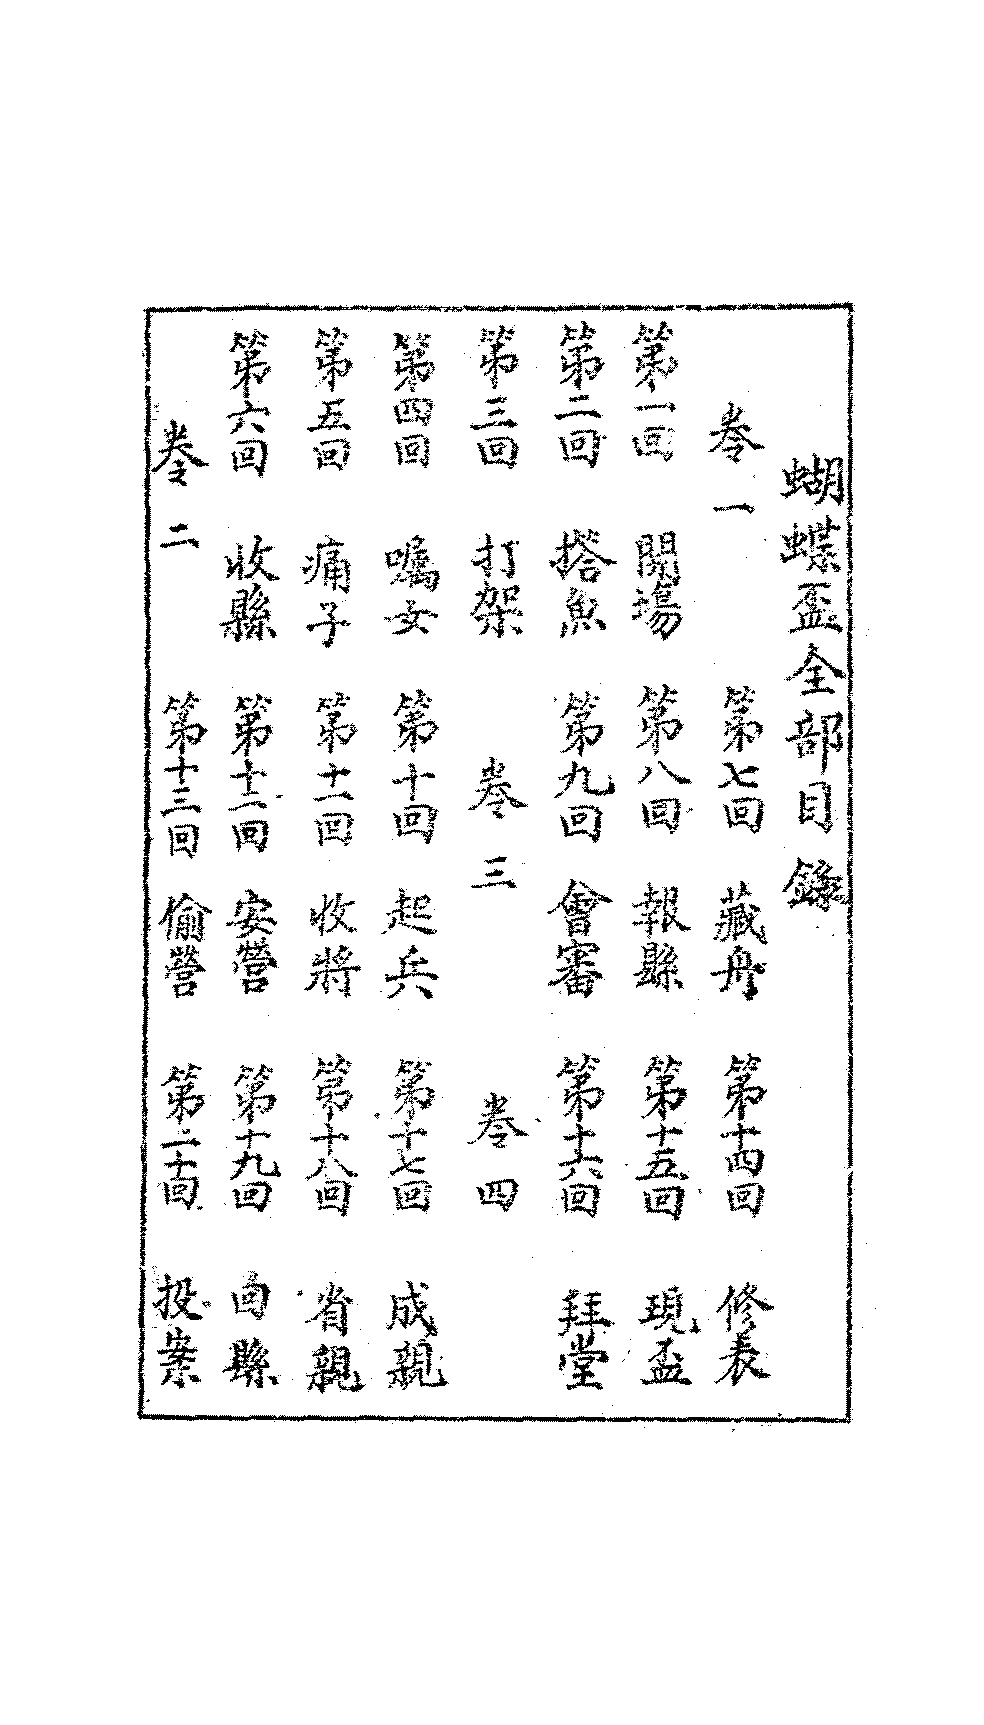 蝴蝶盃全部目錄
卷一
第一回 開場
第二回 搭魚
第三回 打架
第四回 嘱女
第五回 痛子
第六回 收縣
卷二
第七回 藏舟
第八回 報縣
第九回 會審
卷三
第十回 起兵
第十一回 收將
第十二回 安營
第十三回 偷營
卷四
第十四回 修表
第十五回 現盃
第十六回 拜堂
第十七回 成親
第十八回 省親
第十九回 囬縣
第二十回 投案